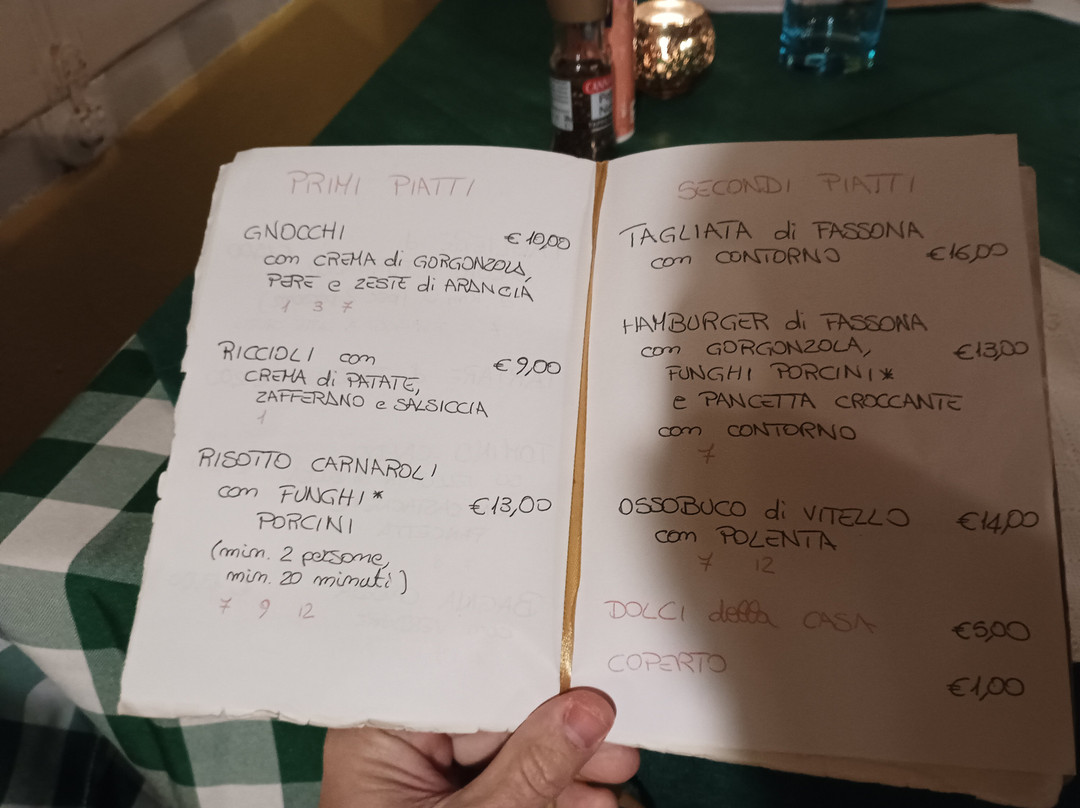 PRIMI PIATTI
GNOCCHI €10,00
con CREMA di GORGONZOLA,
PERE e ZESTE di ARANCIA
1 3 7
RICCIOLI con €9,00
CREMA di PATATE,
ZAFFERANO e SALSICCIA
1
RISOTTO CARNAROLI
con FUNGHI* €13,00
PORCINI
(min. 2 persone,
min. 20 minuti)
7 9 12
SECONDI PIATTI
TAGLIATA di FASSONA
con CONTORNO €16,00
HAMBURGER di FASSONA
con GORGONZOLA, €13,00
FUNGHI PORCINI*
e PANCETTA CROCCANTE
con CONTORNO
7
OSSOBUCO di VITELLO €14,00
con POLENTA
7 12
DOLCI della CASA €5,00
COPERTO €1,00